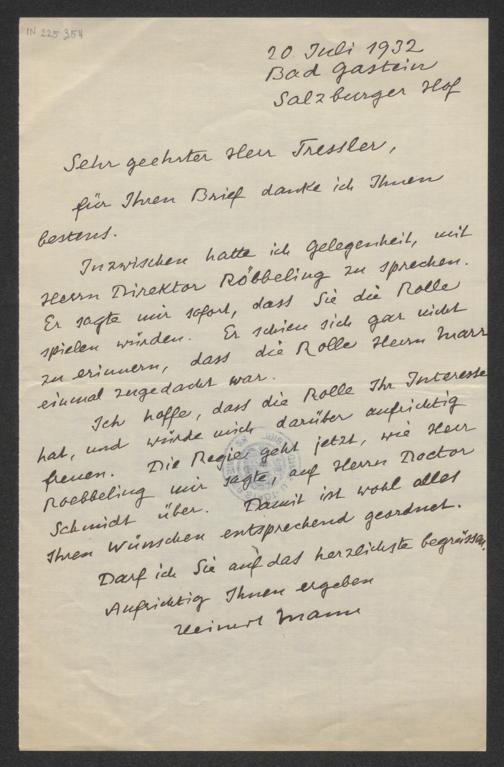 IN 225 354
20 Juli 1932
Bad Gastein
Salzburger Hof
Sehr geehrter Herr Tressler,
für Ihren Brief danke ich Ihnen
bestens.
Inzwischen hatte ich Gelegenheit, mit
Herrn Direktor Röbbeling zu sprechen.
Er sagte mir sofort, dass Sie die Rolle
spielen würden. Er schien sich gar nicht
zu erinnern, dass die Rolle Herrn Marr
einmal zugedacht war.
Ich hoffe, dass die Rolle Ihr Interesse
hat, und würde mich darüber aufrichtig
freuen. Die Regie geht jetzt, wie Herr
Roebbeling mir sagte, auf Herrn Doctor
Schmidt über. Damit ist wohl alles
Ihren Wünschen entsprechend geordnet.
Darf ich Sie auf das herzlichste begrüssen.
Aufrichtig Ihnen ergeben
Heinrich Mann